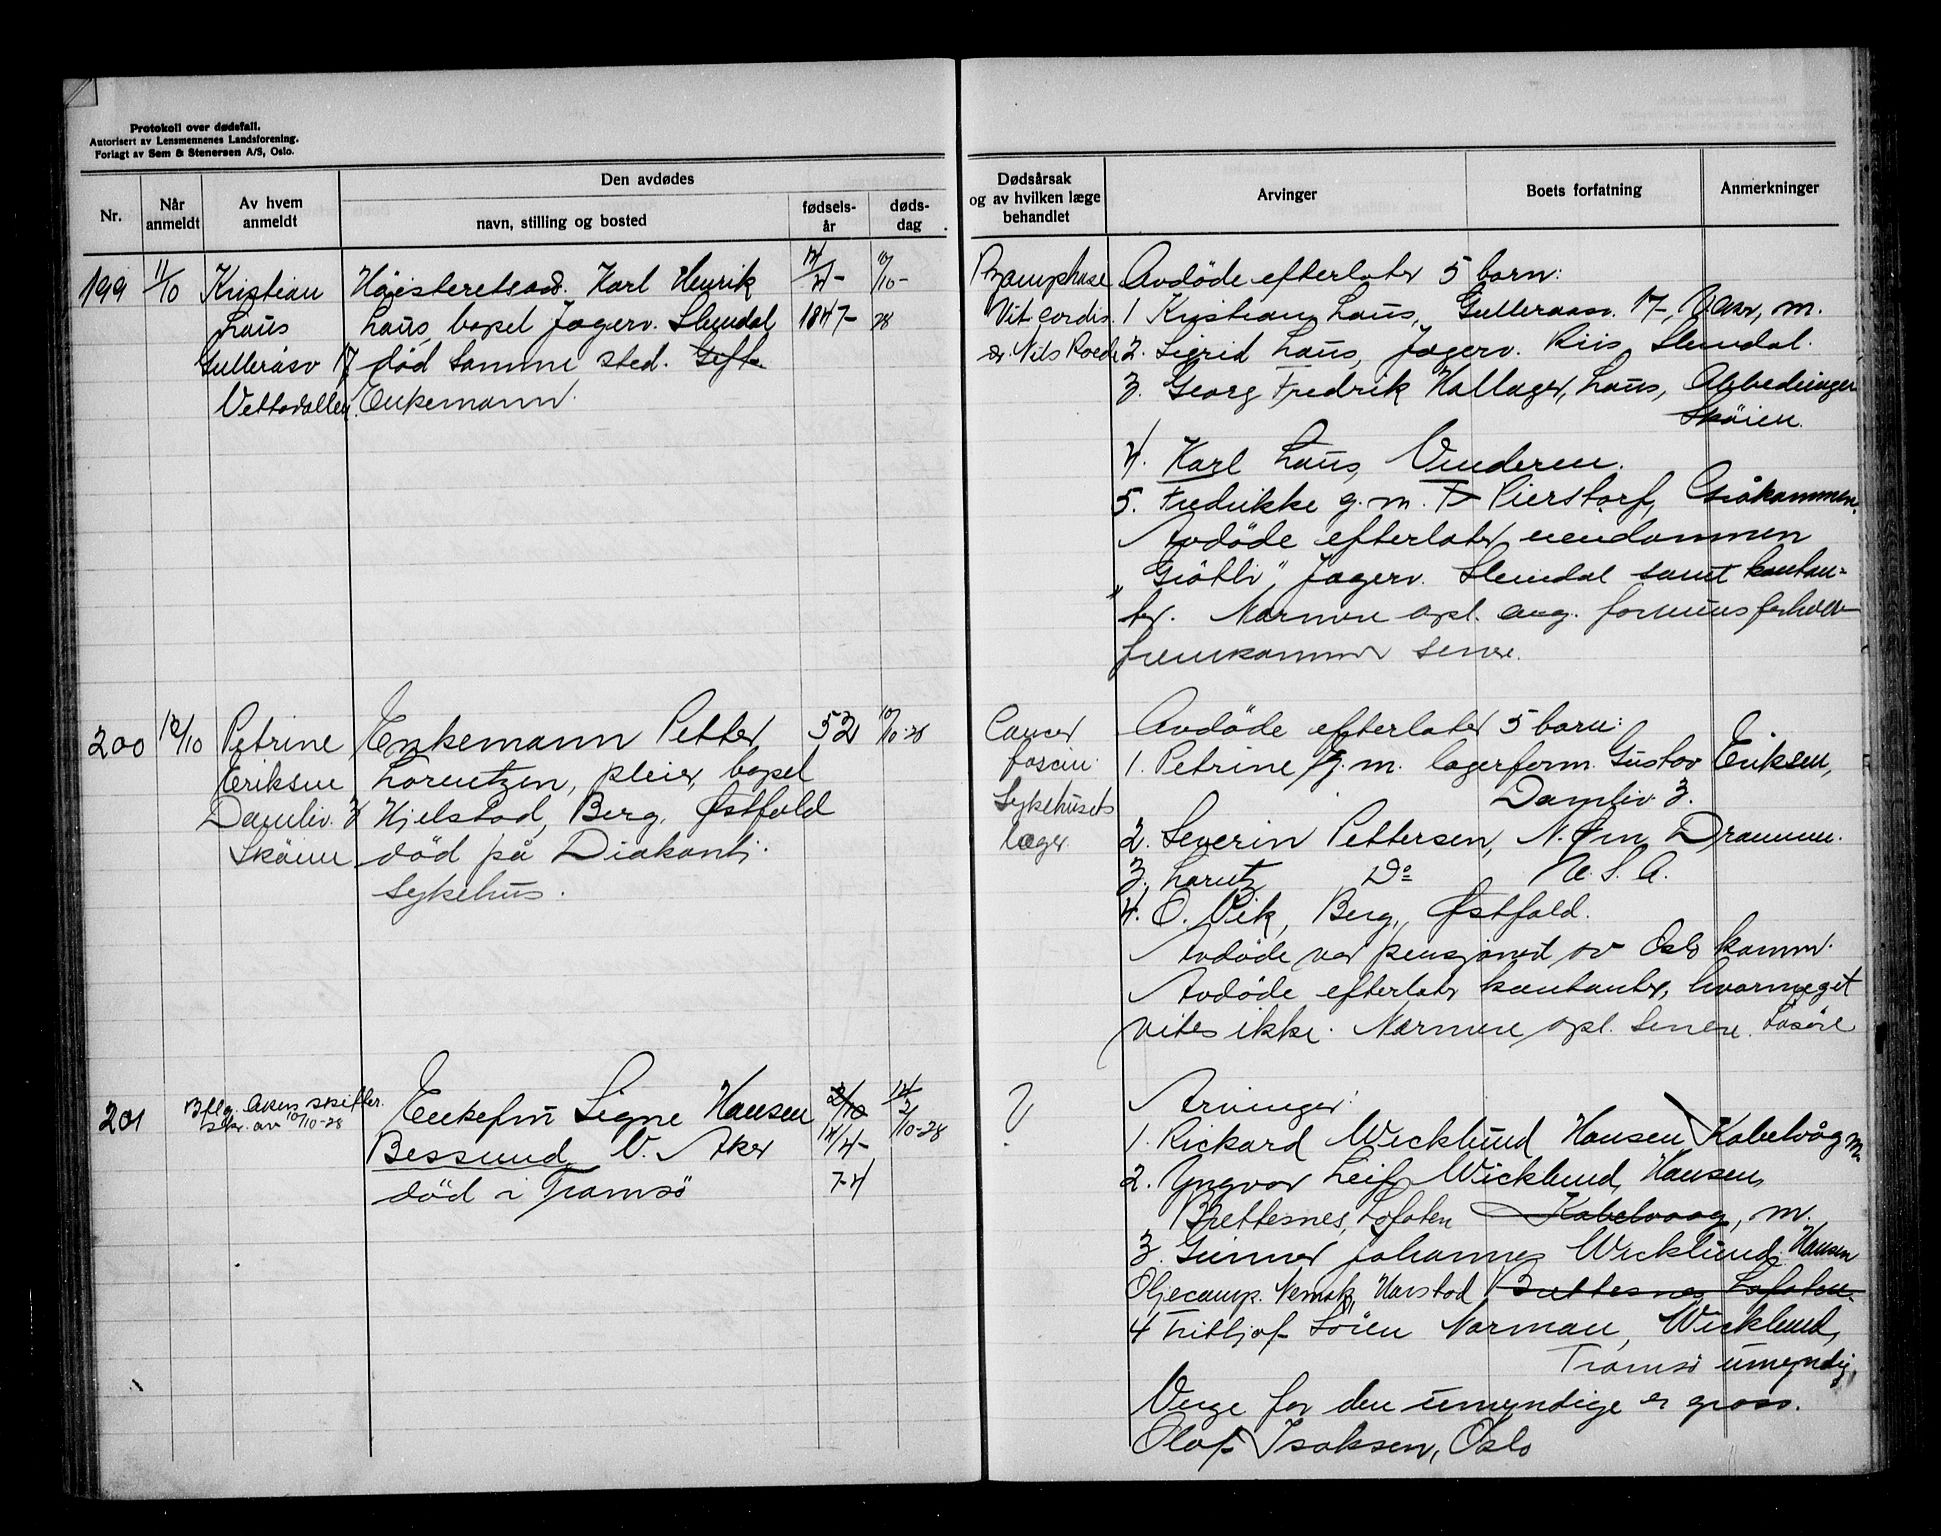 Protokoll over dødsfall.
Autorisert av Lensmennenes Landsforening.
Forlagt av Sem & Stenersen A/S, Oslo.
Nr.
Når anmeldt
Av hvem anmeldt
Den avdødes
navn, stilling og bosted
fødsels-år
døds-dag
Dødsårsak og av hvilken læge behandlet
Arvinger
Boets forfatning
Anmerkninger
199
11/10
Kristian
Laus
Gulleråsv 7
Vettakollen
Høiesteretsadv. Karl Henrik
Laus, bopel Jagerv. Slemdal
død samme sted. Gift.
Enkemann.
1847-
10/10-
28
Vit. cordis.
Dr. Nils Roede
Avdøde efterlater 5 barn:
1 Kristian Laus, Gulleraasv. 17, V. Aker, m.
2. Sigrid Laus, Jagerv. Riis Slemdal.
3. Georg Fredrik Hallager, Laus, Abbediengen
Skøien.
4. Karl Laus, Vinderen.
5. Fredrikke g. m. Pierstorf, Gråkammen.
Avdøde efterlater eiendommen
"Gråtli", Jagerv. Slemdal samt kontan-
ter. Nærmere opl. ang. formuesforhold
fremkommer senere.
200
12/10
Petrine
Eriksen
Damliv. 3
Skøien
Enkemann Petter
Lorentzen, pleier, bopel
Hjelstad, Berg, Østfold
død på Diakonhj.
sykehus.
52
10/10-28
Cancer
Sykehusets
læger
Avdøde efterlater 5 barn:
1. Petrine g. m. lagerform. Gustav Eriksen,
Damliv. 3.
2. Severin Pettersen, N. Øen Drammen.
3. Lorntz Do U. S. A.
4. O. Vik, Berg, Østfold.
Avdøde var pensjonert av Oslo komm.
Avdøde efterlater kontanter, hvormeget
vites ikke. Nærmere opl. senere. Løsøre
201
Iflg. Akers skifter.
skr. av 10/10-28
Enkefru Signe Hansen
Bessund V. Aker
død i Tromsø
2/10
14/4-
74
2/10-28
?
Arvinger:
1. Rickard Wicklund Hansen Kabelvåg m.
2. Yngvar Leif Wicklund Hansen,
Brettesnes, Lofoten Kabelvaag, m.
3. Gunner Johannes Wicklund Hansen
Oljecomp. Harstad Brettesnes Lofoten.
4 Fritljof Søien Norman, Wicklund,
Tromsø umyndig,
Verge for den umyndige er gross.
Olaf Isaksen, Oslo